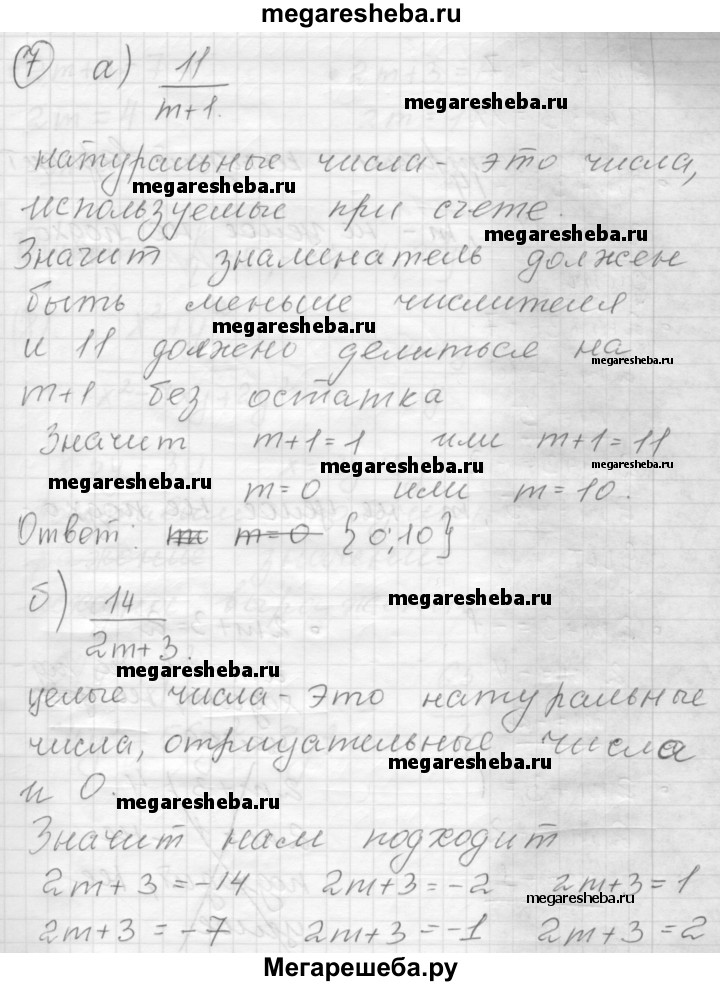 megaresheba.ru
7 а) 11/(m+1).
megaresheba.ru
натуральные числа - это числа,
megaresheba.ru
используемые при счете.
megaresheba.ru
Значит знаменатель должен
быть меньше числителя
megaresheba.ru
и 11 должно делиться на
megaresheba.ru
m+1 без остатка
Значит m+1=1 или m+1=11
megaresheba.ru megaresheba.ru megaresheba.ru
m=0 или m=10.
Ответ: m=0 {0;10}
б) 14/(2m+3).
megaresheba.ru
megaresheba.ru
целые числа - это натуральные
числа, отрицательные числа
megaresheba.ru
и 0.
megaresheba.ru
megaresheba.ru
Значит нам подходит
2m+3=-14 2m+3=-2 2m+3=1
megaresheba.ru
2m+3=-7 2m+3=-1 2m+3=2
Мегарешеба.ру